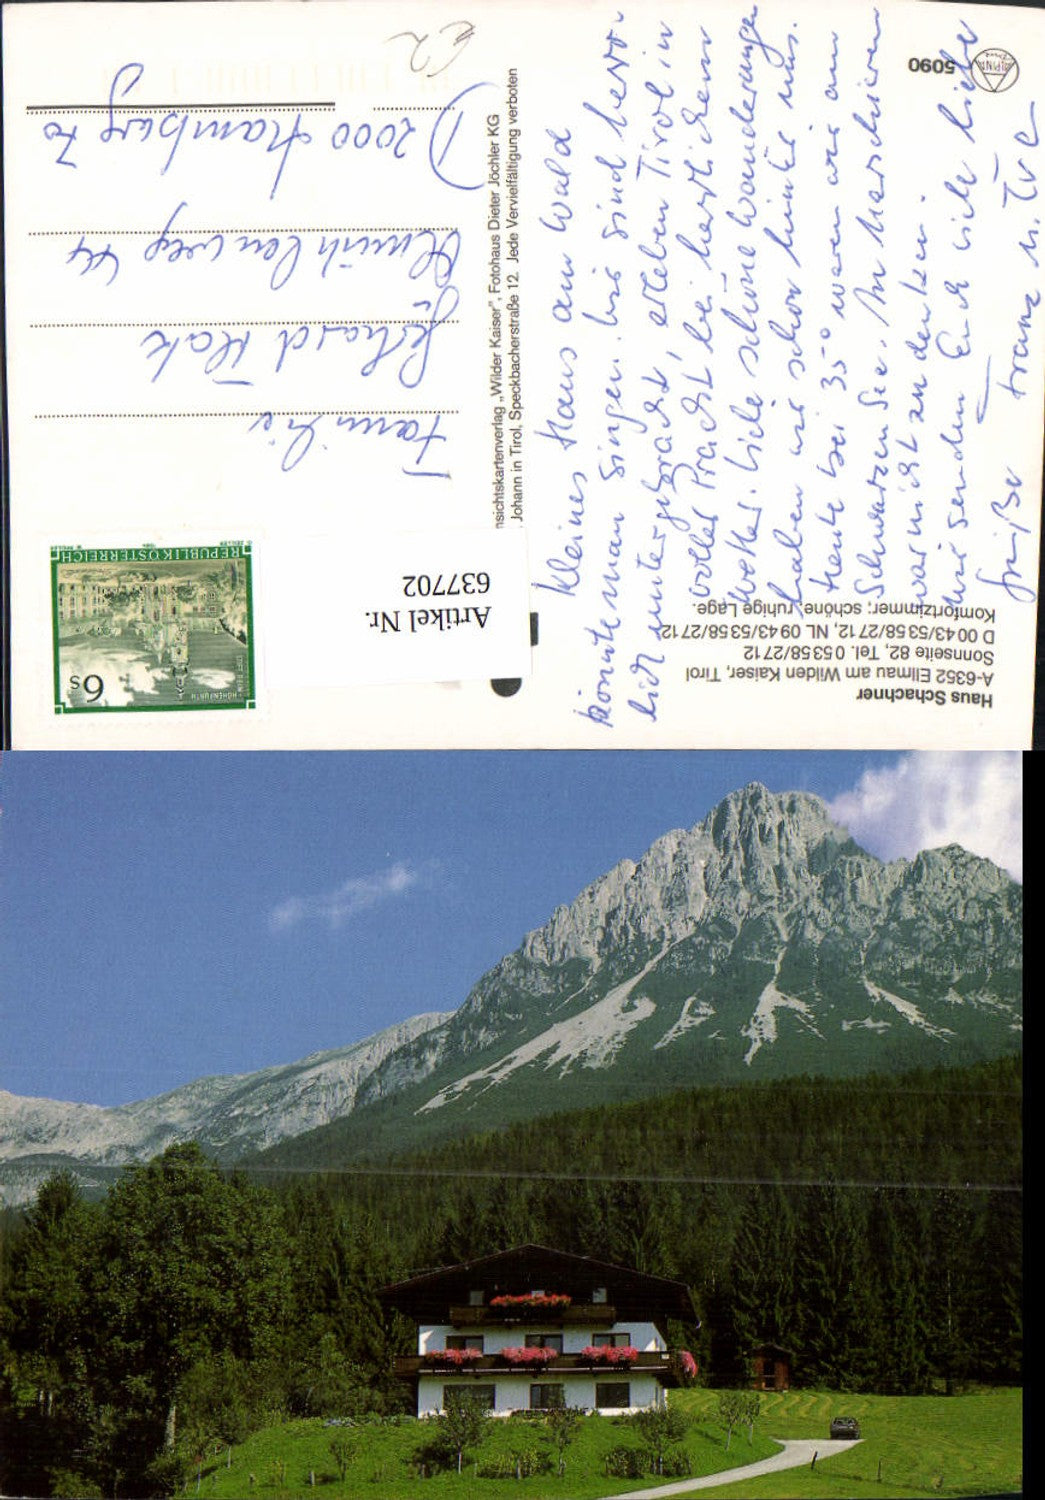 Haus Schachner
A-6352 Ellmau am Wilden Kaiser, Tirol
Sonnseite 82, Tel. 0 53 58/27 12
D 00 43/53 58/27 12, NL 09 43/53 58/27 12
Komfortzimmer, schöne, ruhige Lage.
5090
Kleines Haus am Wald
könnte man singen. Wir sind hervor-
lich untergebracht, erleben Tirol in
voller Pracht bei herrlichem
Wetter. Viele schöne Wanderungen
haben wir schon hinter uns.
Heute bei 35° waren wir am
Schwarzen See. An Marschieren
war nicht zu denken.
Wir senden Euch viele liebe
Grüße Franz u. Eva
nsichtskartenverlag „Wilder Kaiser", Fotohaus Dieter Jöchler KG
Johann in Tirol, Speckbacherstraße 12. Jede Vervielfältigung verboten
Artikel Nr.
637702
6s
STIFT REIN-HOHENFURTH
REPUBLIK ÖSTERREICH
Familie
Gerhard
44
D 2000 Hamburg 70
€2